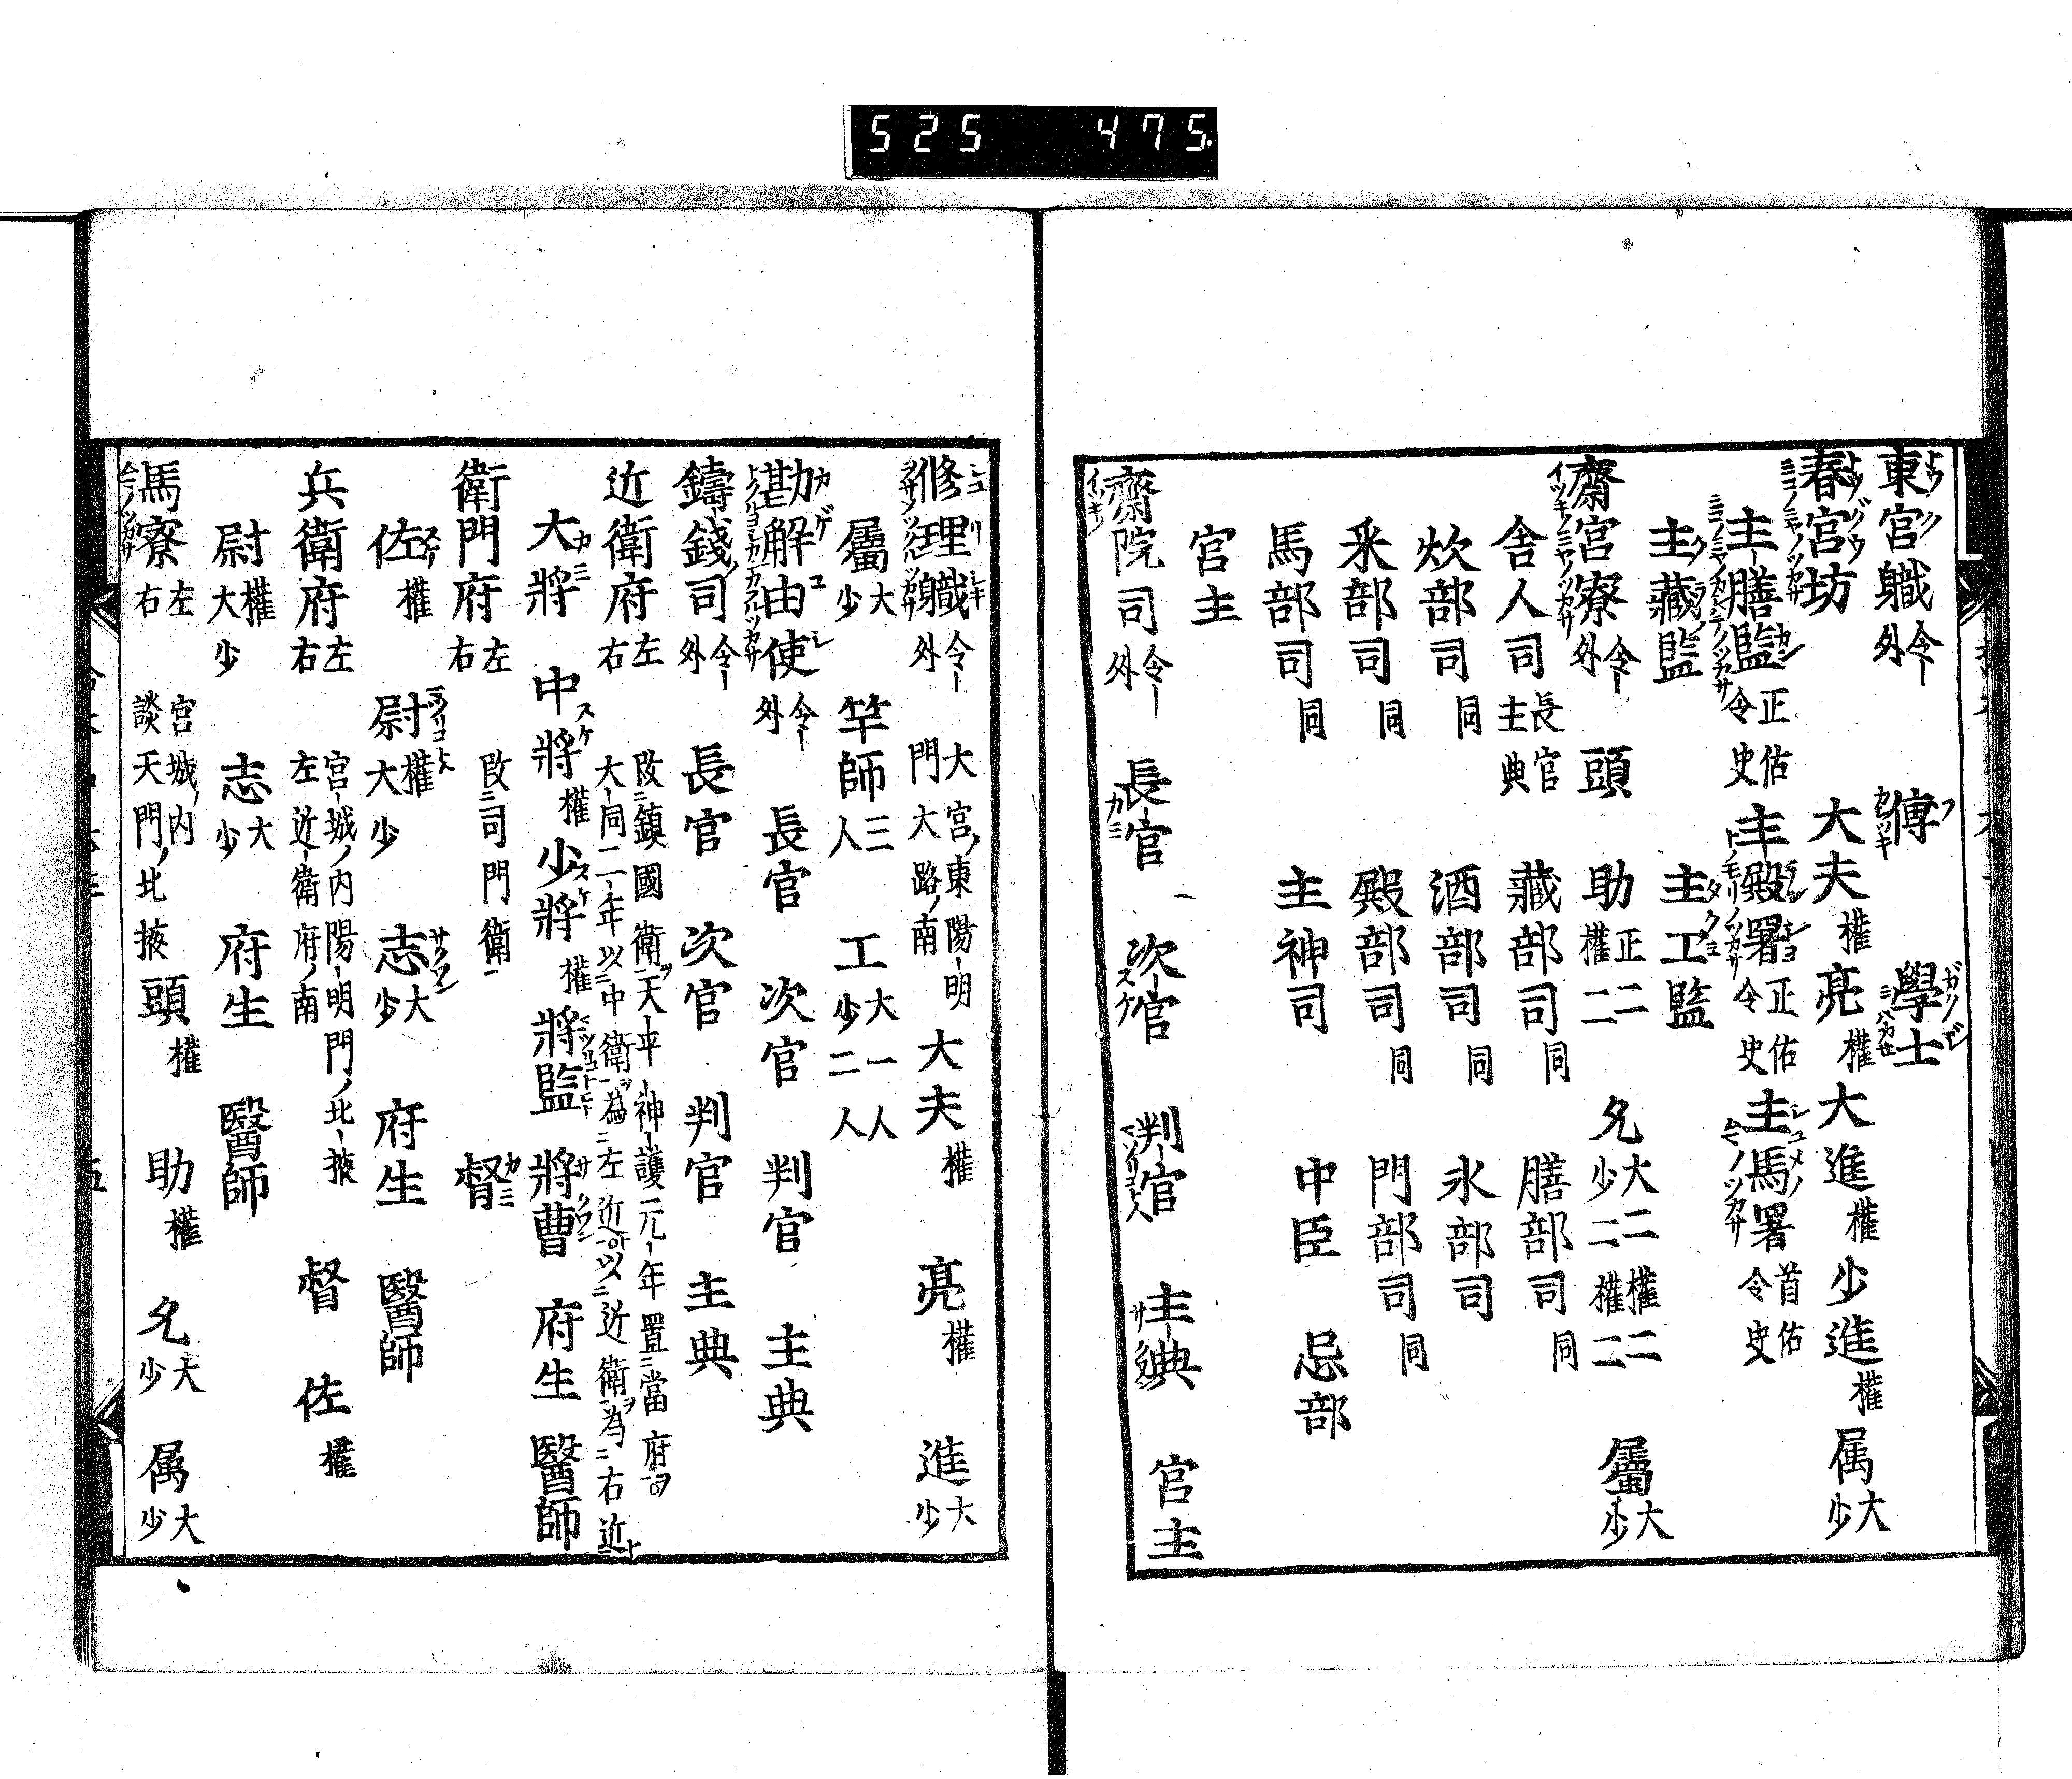 525 475.
東宮職 令外 傅 學士
春宮坊 大夫 權 亮 權 大進 權 少進 權 属 大少
主膳監 正佑令史 主殿署 正佑令史 主馬署 首佑令史
主藏監 主工監
齋宮寮 令外 頭 助 正二權二 允 大二權二少二權二 屬 大少
舎人司 長官主典 藏部司 同 膳部司 同
炊部司 同 酒部司 同 水部司
采部司 同 殿部司 同 門部司 同
馬部司 同 主神司 中臣 忌部
宮主
齋院司 令外 長官 次官 判官 主典 宮主
修理職 令外 大宮ノ東陽明門大路ノ南 大夫 權 亮 權 進 大少
屬 大少 竿師 三人 工 大一人少二人
勘解由使 令外 長官 次官 判官 主典
鑄錢司 令外 長官 次官 判官 主典
近衛府 左右 改鎮國衛天平神護元年置當府大同二年以中衛為左近以近衛為右近
大將 中將 權 少將 權 將監 將曹 府生 醫師
衛門府 左右 改司門衛 督
佐 權 尉 權大少 志 大少 府生 醫師
兵衛府 左右 宮城ノ内陽明門ノ北掖左近衛府ノ南 督 佐 權
尉 權大少 志 大少 府生 醫師
馬寮 左右 宮城ノ内談天門ノ北掖 頭 權 助 權 允 大少 属 大少